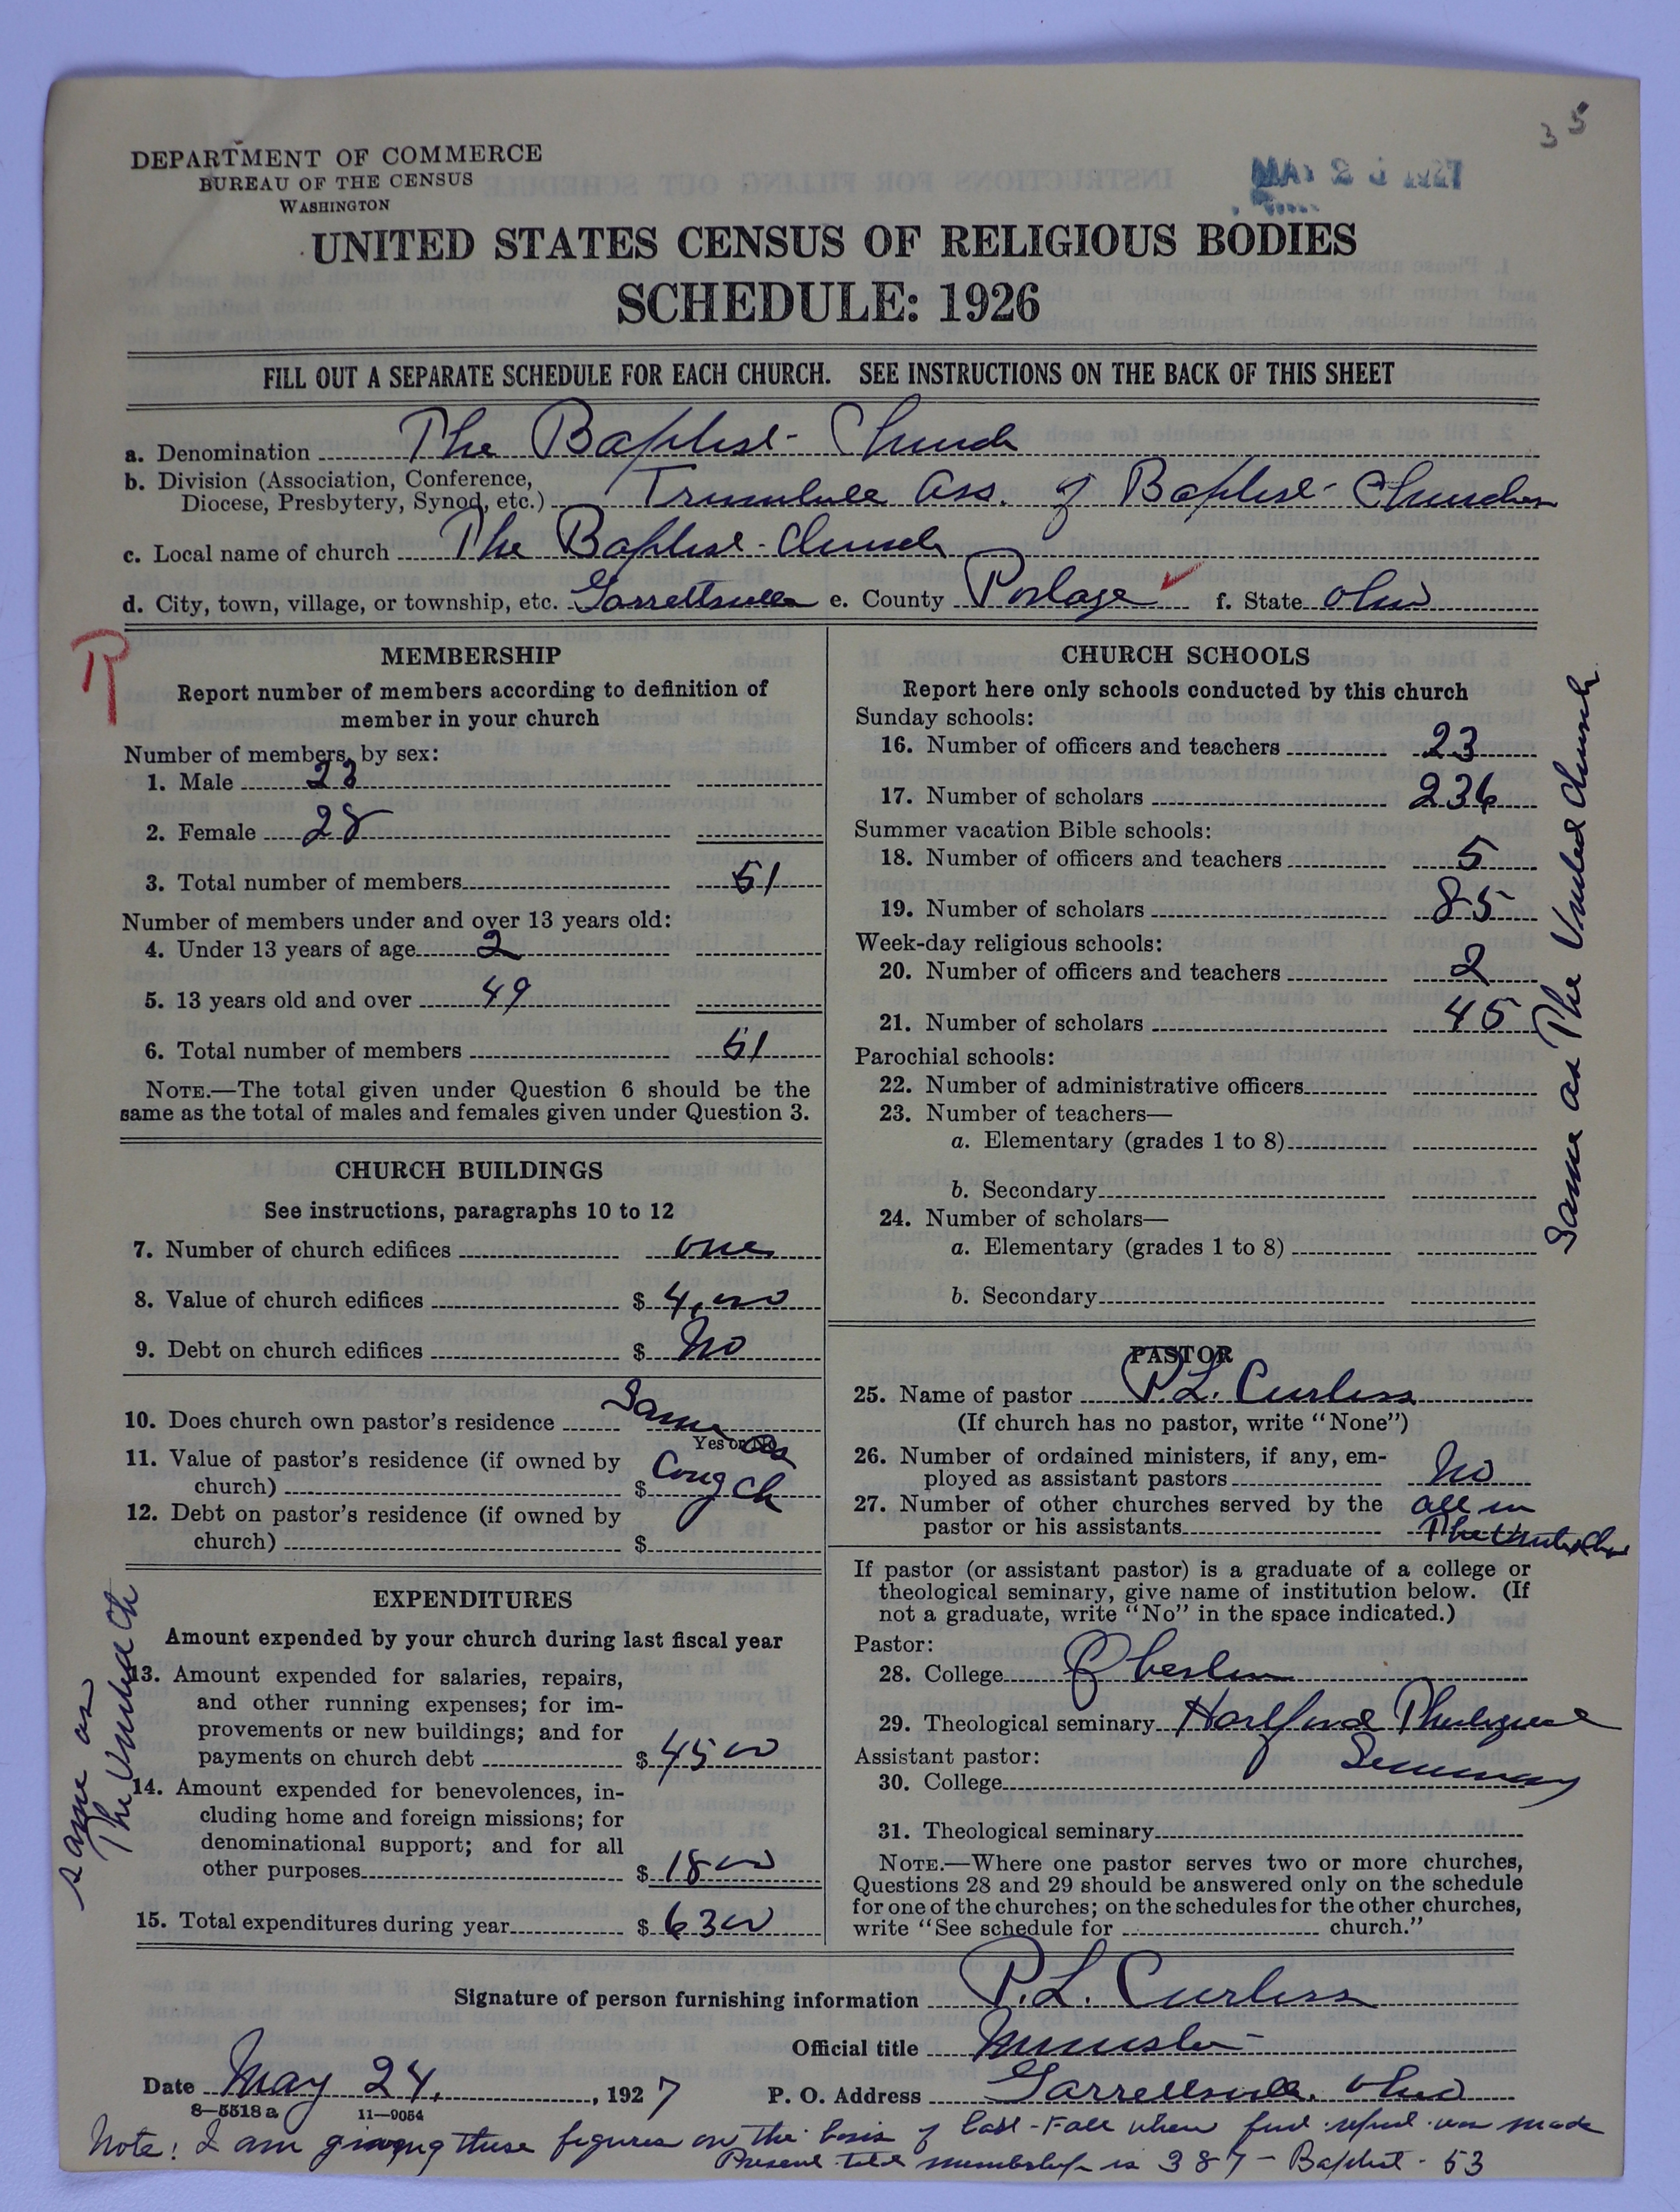 35
DEPARTMENT OF COMMERCE
BUREAU OF THE CENSUS
WASHINGTON
MAY 2 1927
UNITED STATES CENSUS OF RELIGIOUS BODIES
SCHEDULE: 1926
FILL OUT A SEPARATE SCHEDULE FOR EACH CHURCH. SEE INSTRUCTIONS ON THE BACK OF THIS SHEET
a. Denomination The Baptist Church
b. Division (Association, Conference,
Diocese, Presbytery, Synod, etc.) Trumbull Ass. of Baptist Churches
c. Local name of church The Baptist Church
d. City, town, village, or township, etc. Garrettsville e. County Portage f. State Ohio
R
MEMBERSHIP
Report number of members according to definition of
member in your church
Number of members, by sex:
1. Male 23
2. Female 28
3. Total number of members 51
Number of members under and over 13 years old:
4. Under 13 years of age 2
5. 13 years old and over 49
6. Total number of members 51
NOTE.—The total given under Question 6 should be the
same as the total of males and females given under Question 3.
CHURCH BUILDINGS
See instructions, paragraphs 10 to 12
7. Number of church edifices one
8. Value of church edifices $ 4,000
9. Debt on church edifices $ No
10. Does church own pastor's residence Same as
Yes or No
11. Value of pastor's residence (if owned by
church) $ Cong Ch
12. Debt on pastor's residence (if owned by
church) $
EXPENDITURES
Amount expended by your church during last fiscal year
13. Amount expended for salaries, repairs,
and other running expenses; for im-
provements or new buildings; and for
payments on church debt $ 4500
14. Amount expended for benevolences, in-
cluding home and foreign missions; for
denominational support; and for all
other purposes $ 1800
15. Total expenditures during year $ 6300
same as
The United Ch
CHURCH SCHOOLS
Report here only schools conducted by this church
Sunday schools:
16. Number of officers and teachers 23
17. Number of scholars 236
Summer vacation Bible schools:
18. Number of officers and teachers 5
19. Number of scholars 85
Week-day religious schools:
20. Number of officers and teachers 2
21. Number of scholars 45
Parochial schools:
22. Number of administrative officers
23. Number of teachers—
a. Elementary (grades 1 to 8)
b. Secondary
24. Number of scholars—
a. Elementary (grades 1 to 8)
b. Secondary
Same as The United Church
PASTOR
25. Name of pastor P. L. Curtiss
(If church has no pastor, write "None")
26. Number of ordained ministers, if any, em-
ployed as assistant pastors No
27. Number of other churches served by the all in
pastor or his assistants The United Ch
If pastor (or assistant pastor) is a graduate of a college or
theological seminary, give name of institution below. (If
not a graduate, write "No" in the space indicated.)
Pastor:
28. College Oberlin
29. Theological seminary Hartford Theological
Seminary
Assistant pastor:
30. College
31. Theological seminary
NOTE.—Where one pastor serves two or more churches,
Questions 28 and 29 should be answered only on the schedule
for one of the churches; on the schedules for the other churches,
write "See schedule for church."
Signature of person furnishing information P. L. Curtiss
Official title Minister
Date May 24, 1927 P. O. Address Garrettsville, Ohio
8—5518 a 11—9054
Note: I am giving these figures on the basis of last Fall when was made
Present total membership is 387 - Baptist - 53